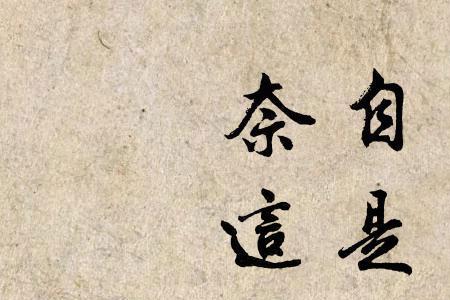 自是
奈這